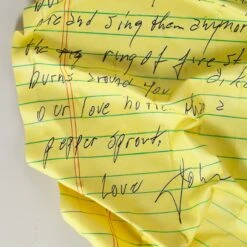 and sing them anymor
the ring of fire st
burns around you
our love
pepper sprout.
Love John